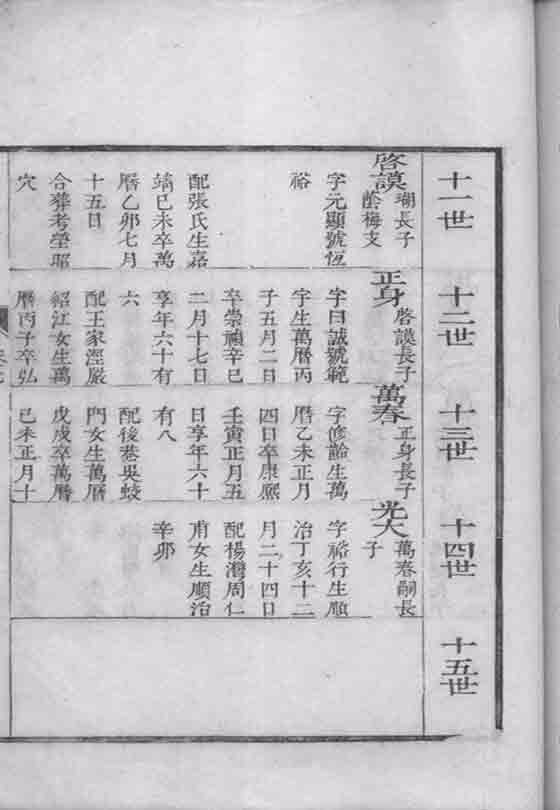 十一世
十二世
十三世
十四世
十五世
啓謨
瑚長子
齡梅支
字元顯號恆
裕
配張氏生嘉
靖己未卒萬
曆乙卯七月
十五日
合葬考塋昭
穴
正身
啓謨長子
字曰誠號範
宇生萬曆丙
子五月二日
卒崇禎辛巳
二月十七日
享年六十有
六
配王家涇嚴
紹江女生萬
曆丙子卒弘
萬春
正身長子
字修齡生萬
曆乙未正月
四日卒康熙
壬寅正月五
日享年六十
有八
配後巷吳蛟
門女生萬曆
戊戌卒萬曆
己未正月十
光大
萬春嗣長
子
字裕行生順
治丁亥十二
月二十四日
配楊灣周仁
甫女生順治
辛卯